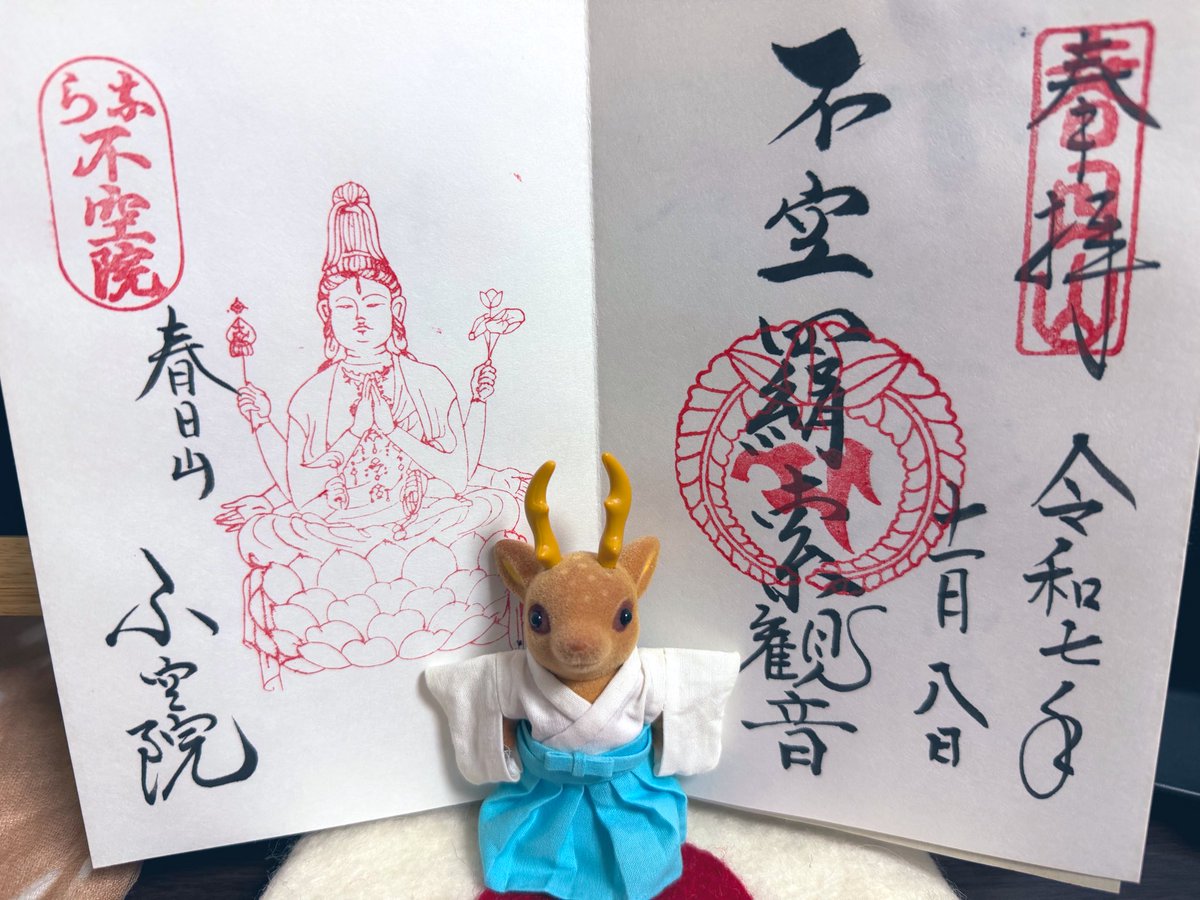 奉拝
春日山
令和七年
十一月八日
不空羂索観音
春日山
不空院
なら
不空院